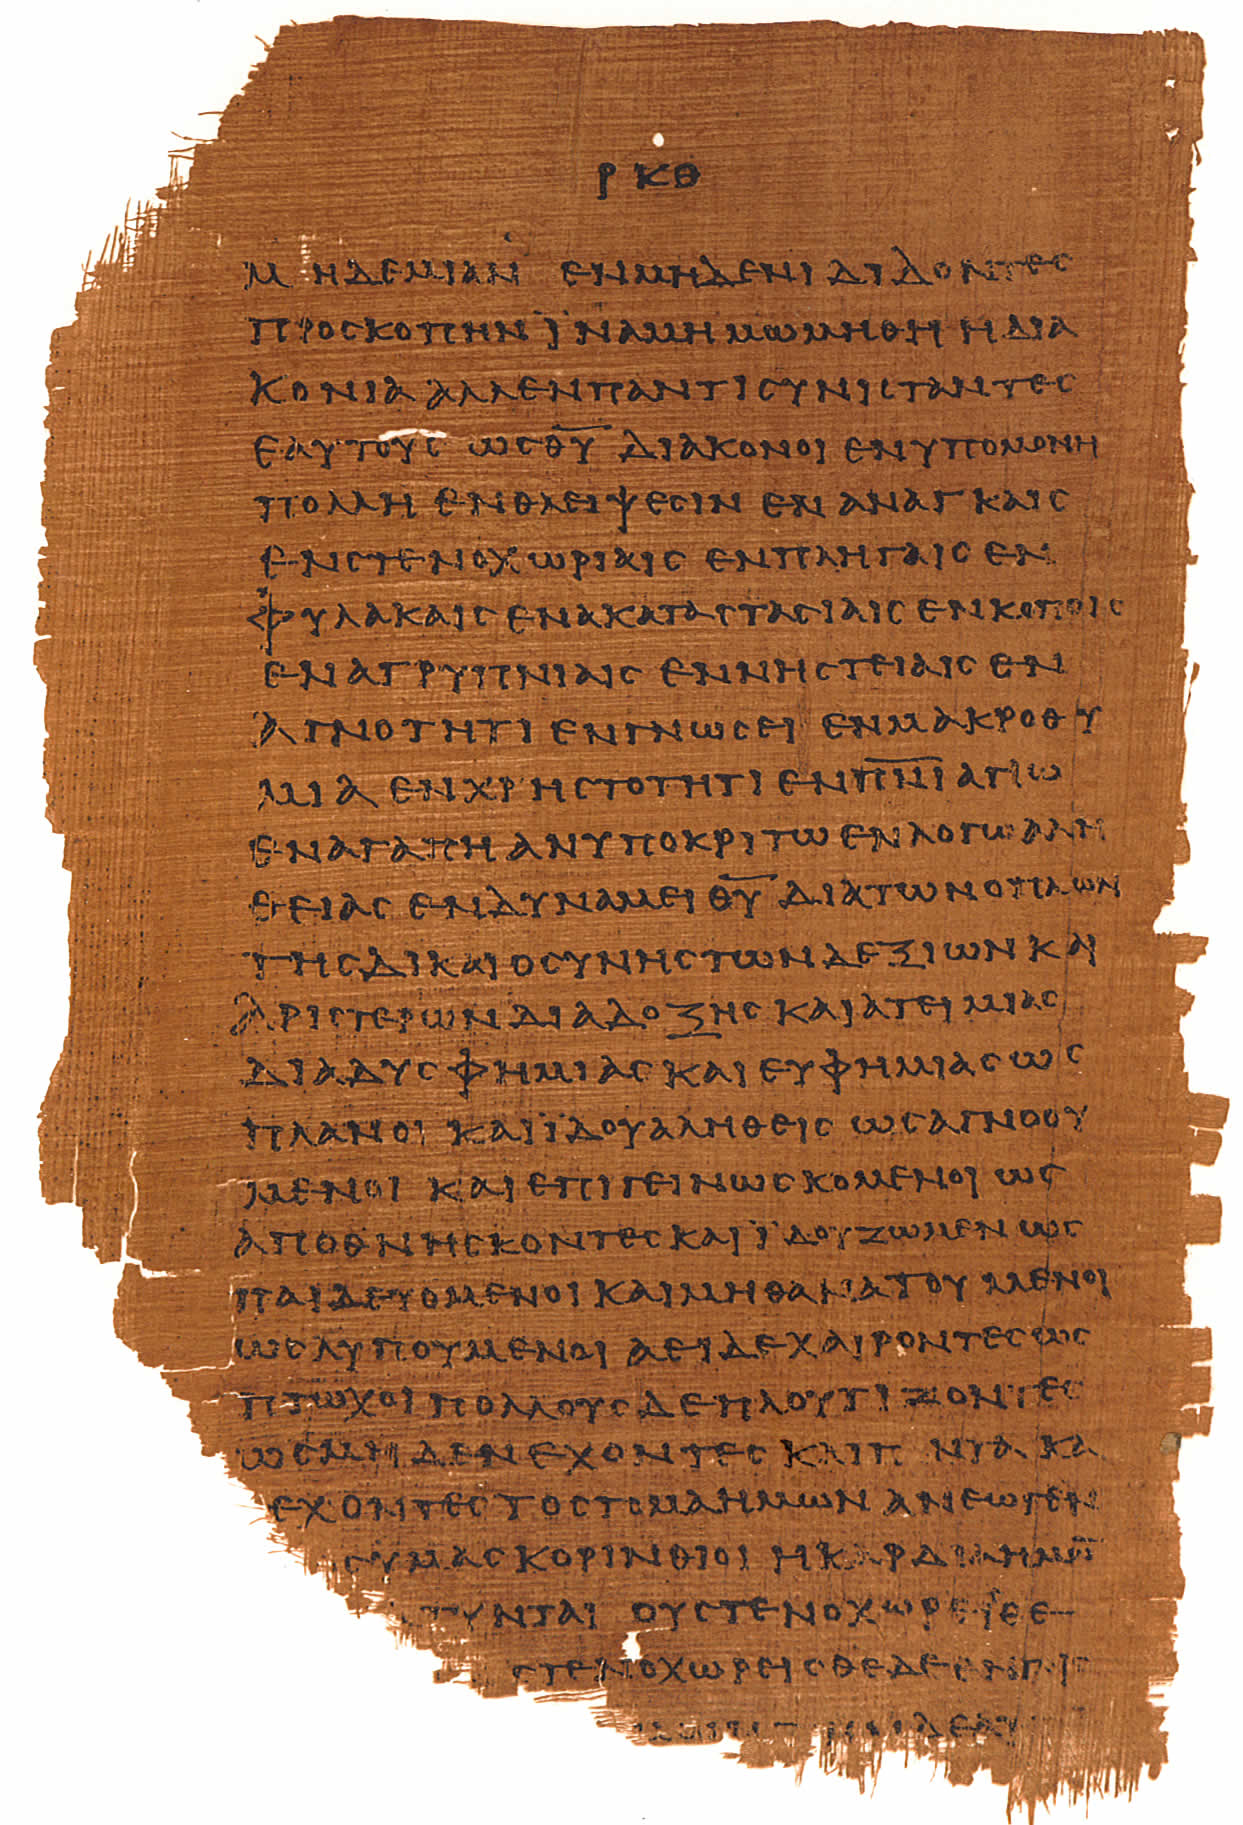 ΡΚΘ
ΜΗΔΕΜΙΑΝ ΕΝΜΗΔΕΝΙ ΔΙΔΟΝΤΕΣ
ΠΡΟΣΚΟΠΗΝ ΪΝΑΜΗ ΜΩΜΗΘΗ ΗΔΙΑ
ΚΟΝΙΑ ΑΛΛΕΝΠΑΝΤΙ ΣΥΝΙΣΤΑΝΤΕΣ
ΕΑΥΤΟΥΣ ΩΣΘ̅Υ̅ ΔΙΑΚΟΝΟΙ ΕΝΥΠΟΜΟΝΗ
ΠΟΛΛΗ ΕΝΘΛΕΙΨΕΣΙΝ ΕΝ ΑΝΑΓΚΑΙΣ
ΕΝΣΤΕΝΟΧΩΡΙΑΙΣ ΕΝΠΛΗΓΑΙΣ ΕΝ
ΦΥΛΑΚΑΙΣ ΕΝΑΚΑΤΑΣΤΑΣΙΑΙΣ ΕΝΚΟΠΟΙΣ
ΕΝΑΓΡΥΠΝΙΑΙΣ ΕΝΝΗΣΤΕΙΑΙΣ ΕΝ
ΑΓΝΟΤΗΤΙ ΕΝΓΝΩΣΕΙ ΕΝΜΑΚΡΟΘΥ
ΜΙΑ ΕΝΧΡΗΣΤΟΤΗΤΙ ΕΝΠ̅Ν̅Ι̅ ΑΓΙΩ
ΕΝΑΓΑΠΗ ΑΝΥΠΟΚΡΙΤΩ ΕΝΛΟΓΩ ΑΛΗ
ΘΕΙΑΣ ΕΝΔΥΝΑΜΕΙ Θ̅Υ̅ ΔΙΑΤΩΝ ΟΠΛΩΝ
ΤΗΣΔΙΚΑΙΟΣΥΝΗΣ ΤΩΝ ΔΕΞΙΩΝ ΚΑΙ
ΑΡΙΣΤΕΡΩΝ ΔΙΑΔΟΞΗΣ ΚΑΙ ΑΤΕΙΜΙΑΣ
ΔΙΑΔΥΣΦΗΜΙΑΣ ΚΑΙ ΕΥΦΗΜΙΑΣ ΩΣ
ΠΛΑΝΟΙ ΚΑΙ ΪΔΟΥ ΑΛΗΘΕΙΣ ΩΣ ΑΓΝΟΟΥ
ΜΕΝΟΙ ΚΑΙ ΕΠΙΓΕΙΝΩΣΚΟΜΕΝΟΙ ΩΣ
ΑΠΟΘΝΗΣΚΟΝΤΕΣ ΚΑΙ ΪΔΟΥ ΖΩΜΕΝ ΩΣ
ΠΑΙΔΕΥΟΜΕΝΟΙ ΚΑΙ ΜΗ ΘΑΝΑΤΟΥΜΕΝΟΙ
ΩΣ ΛΥΠΟΥΜΕΝΟΙ ΑΕΙ ΔΕ ΧΑΙΡΟΝΤΕΣ ΩΣ
ΠΤΩΧΟΙ ΠΟΛΛΟΥΣ ΔΕ ΠΛΟΥΤΙΖΟΝΤΕΣ
ΩΣ ΜΗΔΕΝ ΕΧΟΝΤΕΣ ΚΑΙ Π ΝΤΑ ΚΑ
ΕΧΟΝΤΕΣ ΤΟ ΣΤΟΜΑ ΗΜΩΝ ΑΝΕΩΓΕΝ
Σ ΥΜΑΣ ΚΟΡΙΝΘΙΟΙ Η ΚΑΡΔΙΑ ΗΜΩ̅
ΤΥΝΤΑΙ ΟΥ ΣΤΕΝΟΧΩΡΕΙΣΘΕ
ΣΤΕΝΟΧΩΡΕΙΣΘΕ ΔΕ ΕΝ